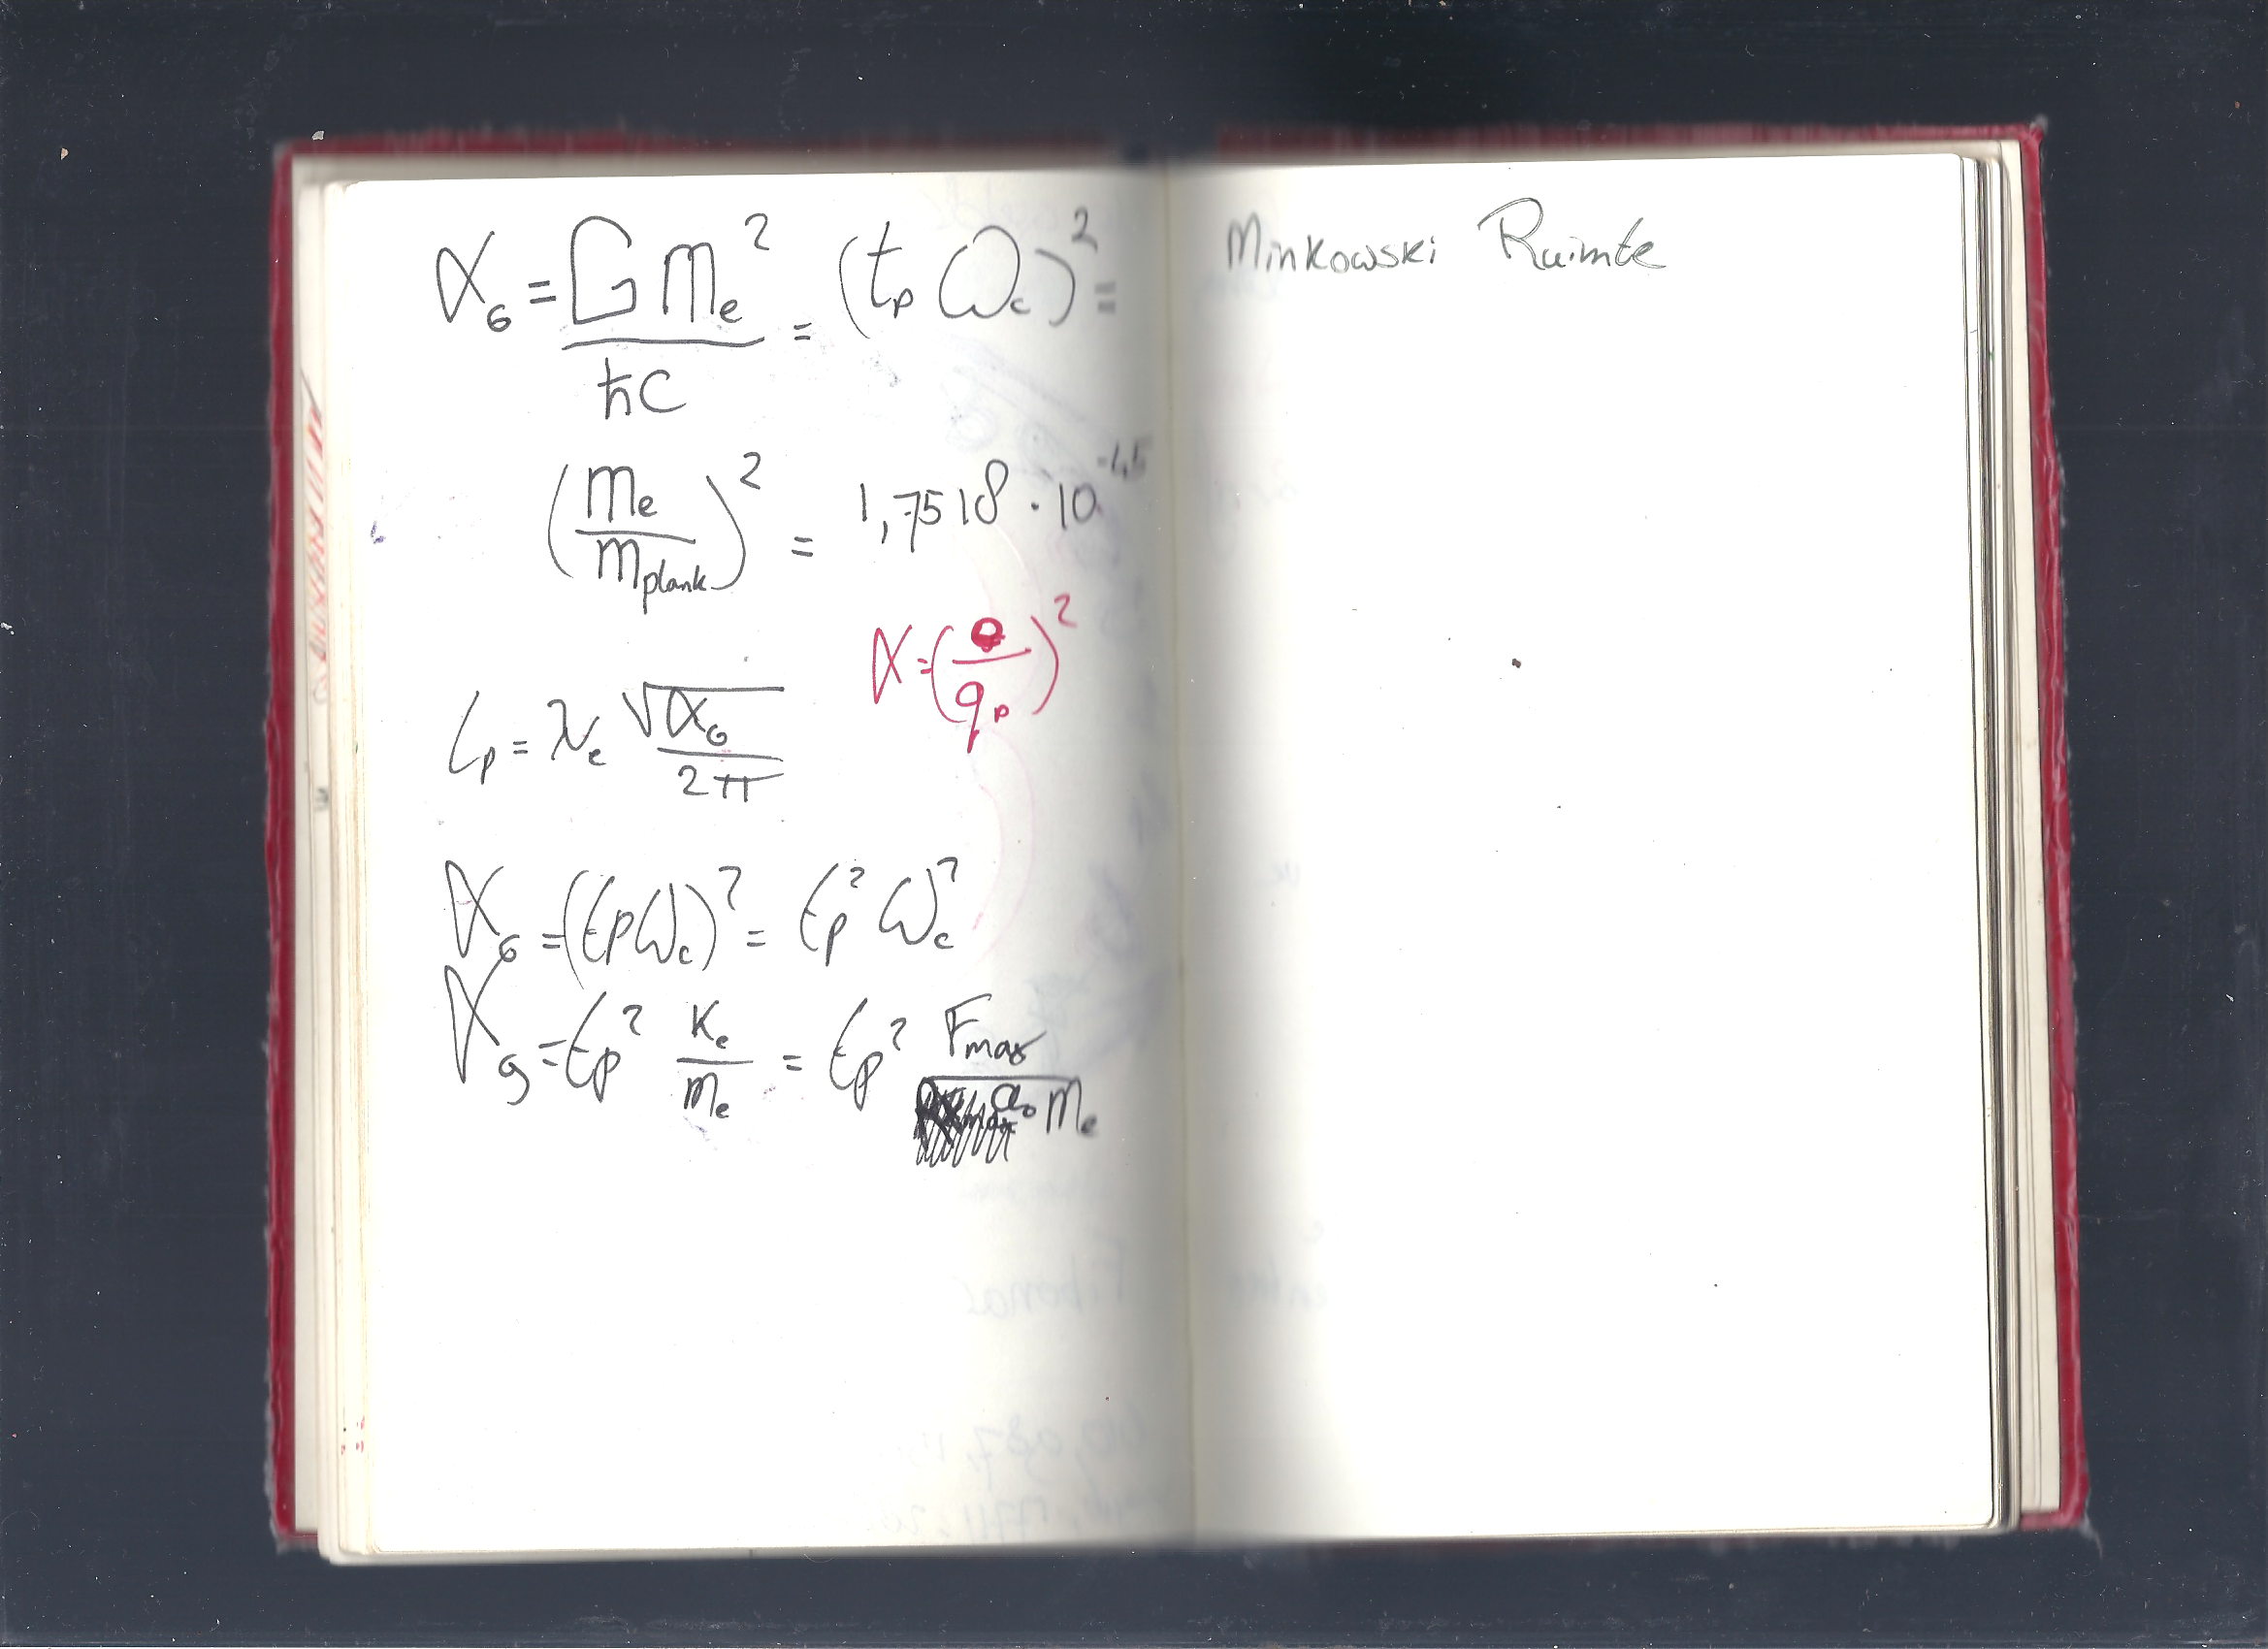 α_G = G m_e² / ħc = (t_p ω_c)² =
(m_e / m_plank)² = 1,7518 · 10^-45
α = (e / q_p)²
l_p = λ_e √α_G / 2π
α_G = (t_p ω_c)² = t_p² ω_c²
α_g = t_p² K_e / m_e = t_p² F_max / a_0 m_e
Minkowski Ruimte